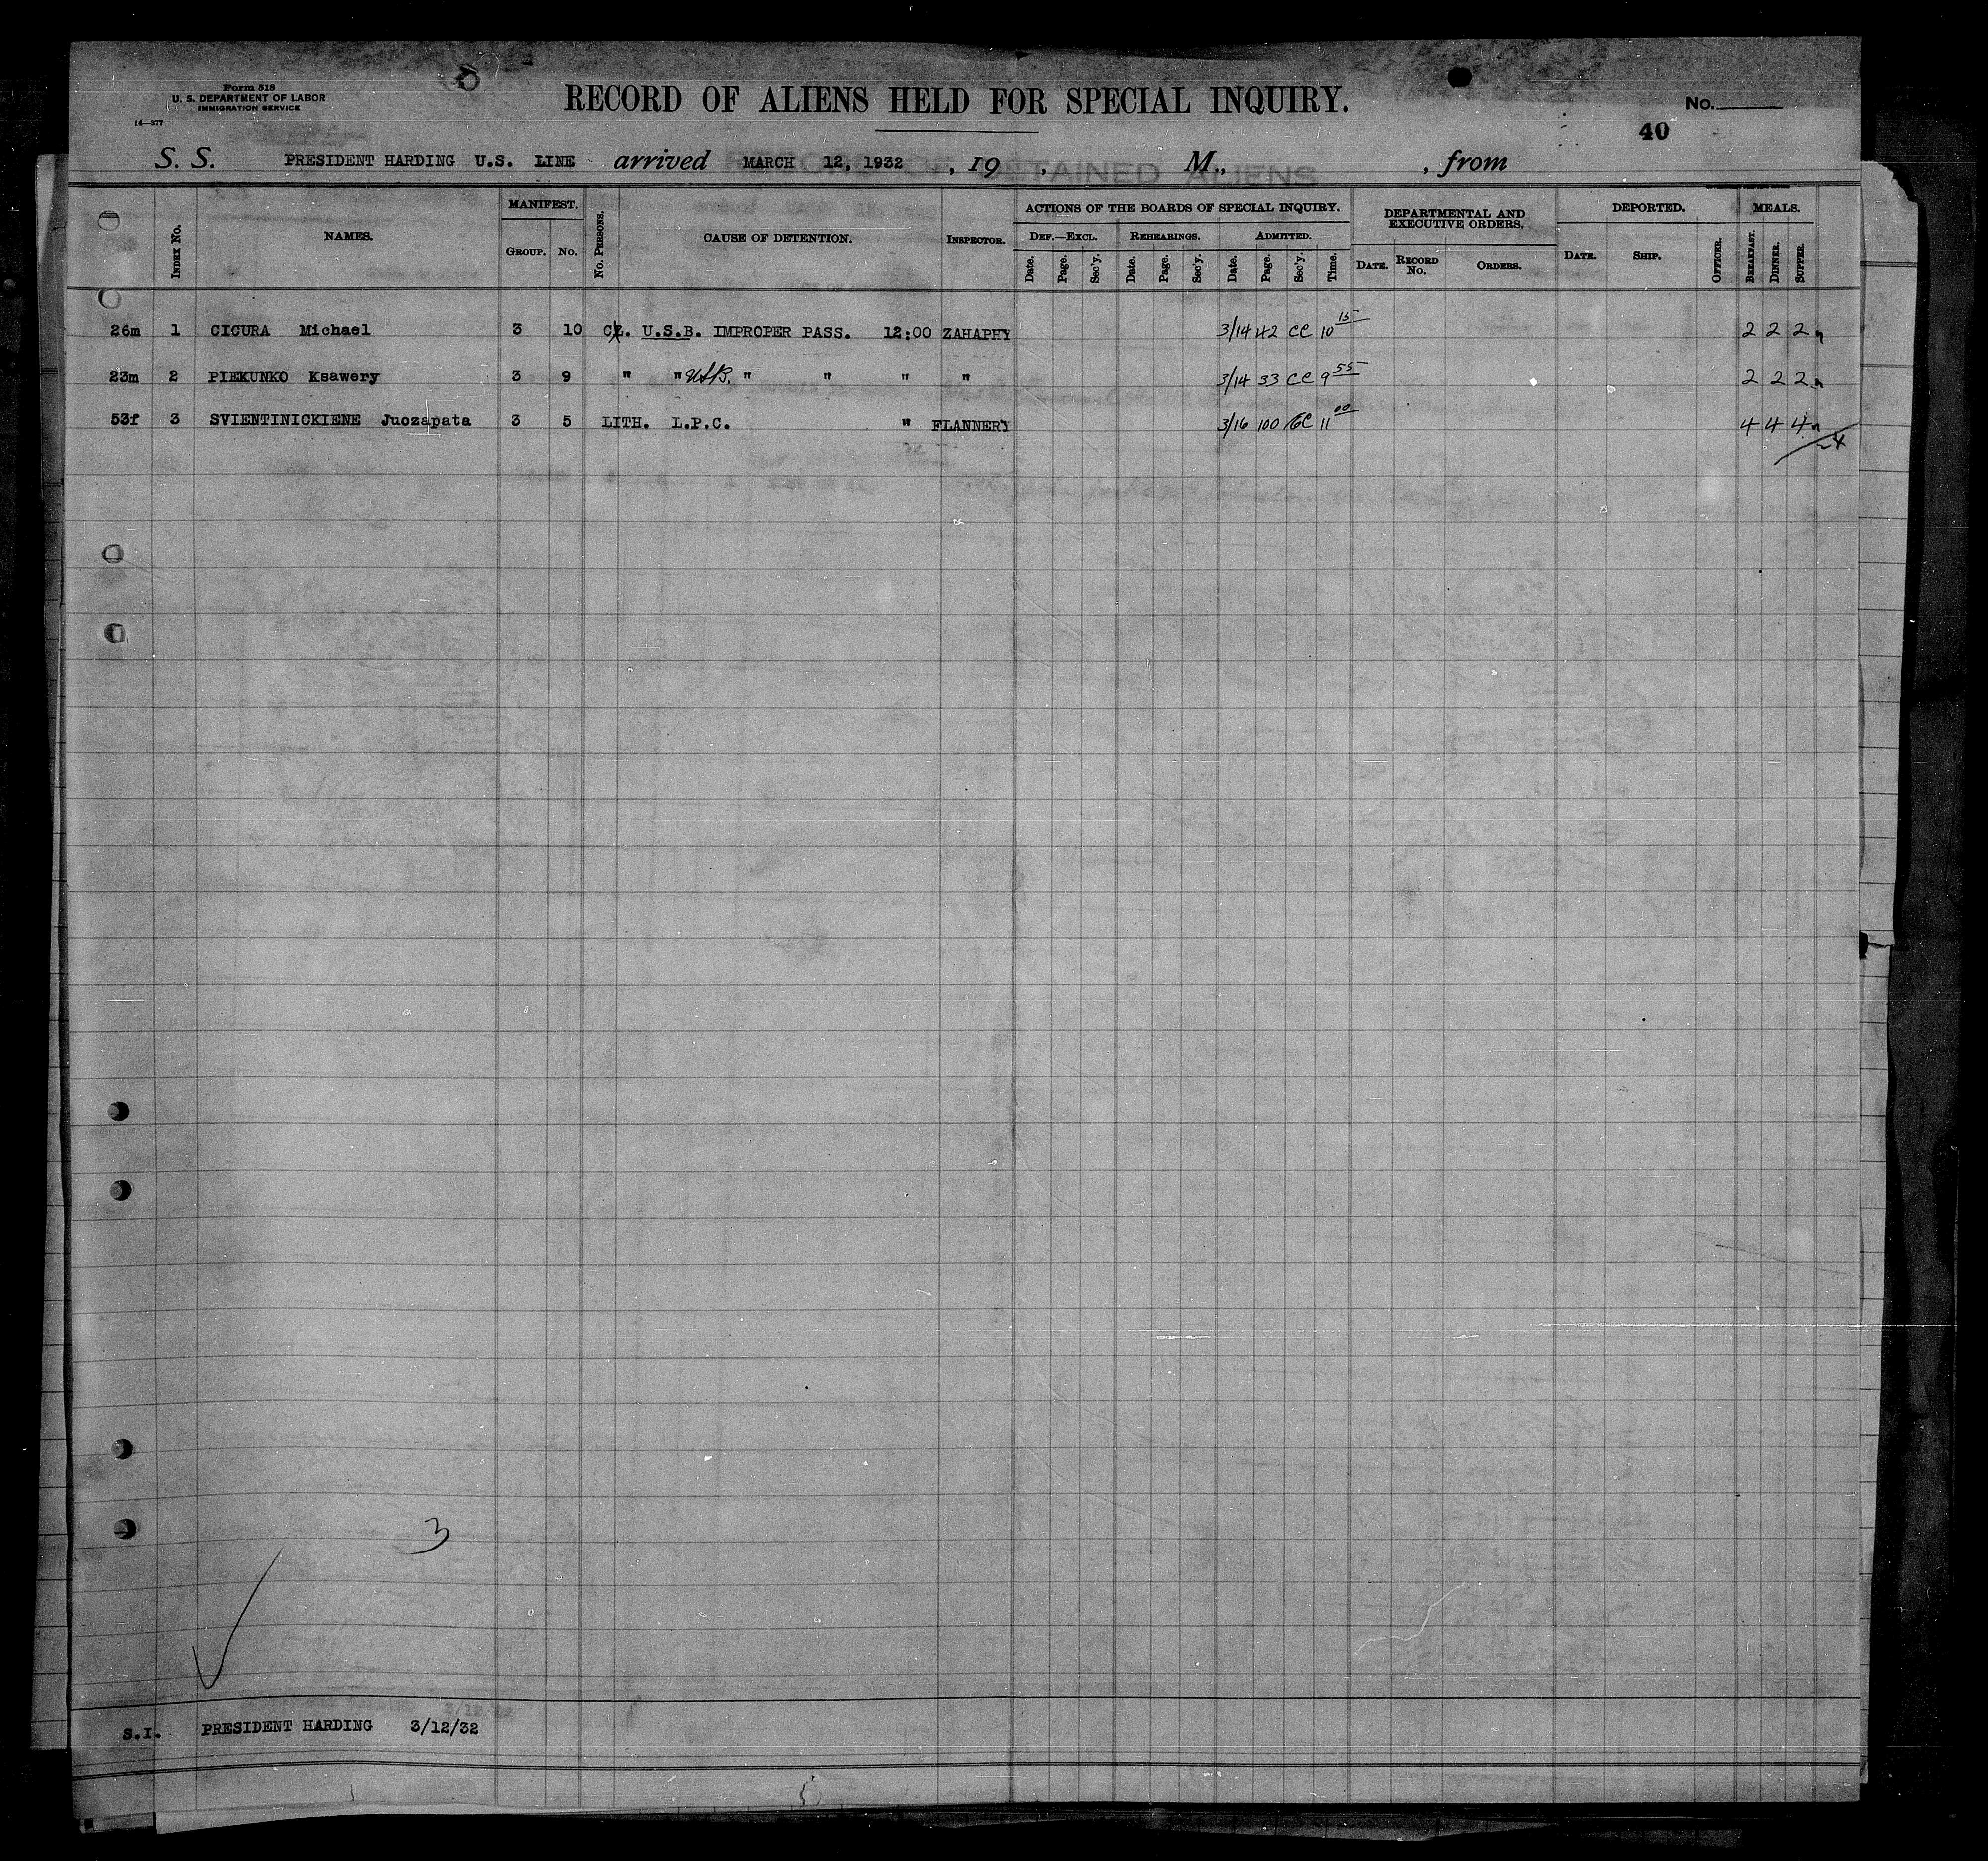 Form 518
U. S. DEPARTMENT OF LABOR
IMMIGRATION SERVICE
14—377
RECORD OF ALIENS HELD FOR SPECIAL INQUIRY.
No.
40
S. S. PRESIDENT HARDING U.S. LINE arrived MARCH 12, 1932 , 19 , M., , from
RECORD OF DETAINED ALIENS
INDEX NO. NAMES. MANIFEST. GROUP. NO. NO. PERSONS. CAUSE OF DETENTION. INSPECTOR. ACTIONS OF THE BOARDS OF SPECIAL INQUIRY. DEPARTMENTAL AND EXECUTIVE ORDERS. DEPORTED. MEALS.
DEF.—EXCL. REHEARINGS. ADMITTED.
Date. Page. Sec'y. Date. Page. Sec'y. Date. Page. Sec'y. Time. DATE. RECORD NO. ORDERS. DATE. SHIP. OFFICER. BREAKFAST. DINNER. SUPPER.
26m 1 CICURA Michael 3 10 U.S.B. IMPROPER PASS. 12:00 ZAHAPHY 3/14 42 CC 10 15 2 2 2
23m 2 PIEKUNKO Ksawery 3 9 " " USB. " " " " 3/14 33 CC 9 55 2 2 2
53f 3 SVIENTINICKIENE Juozapata 3 5 LITH. L.P.C. " FLANNERY 3/16 100 CC 11 00 4 4 4
24
3
S.I. PRESIDENT HARDING 3/12/32